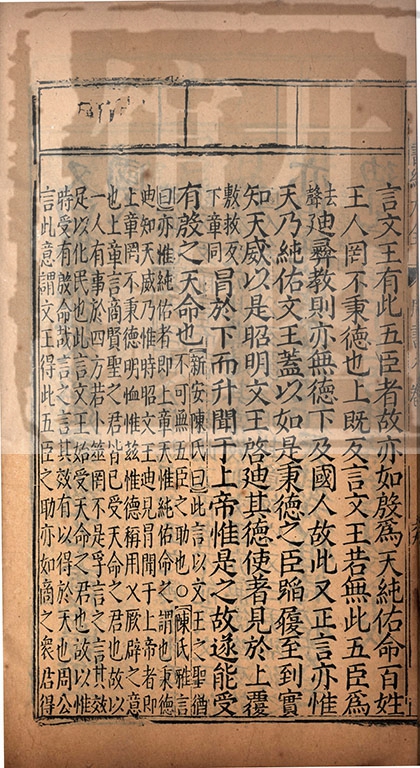 言文王有此五臣者故亦如殷爲天純佑命百姓
王人罔不秉德也上既反言文王若無此五臣爲
去聲迪彛教則亦無德下及國人故此又正言亦惟
天乃純佑文王蓋以如是秉德之臣蹈履至到實
知天威以是昭明文王啓迪其德使者見於上覆
敷救反下章同冒於下而升聞于上帝惟是之故遂能受
有殷之天命也新安陳氏曰此言以文王之聖猶
不可無五臣之助也○陳氏雅言
曰亦惟純佑者即上章天惟純佑命之謂也秉德
迪知天威乃惟時昭文王迪見冒聞于上帝者即
上章罔不秉德明恤惟兹惟德稱用乂厥辟之意
也上章言商賢聖之君皆已受天命之君也故以
一人有事於四方若卜筮罔不是孚言之言其效
足以化民也此言文王始受天命之君也故以惟
時受有殷命哉言之言其效有以得於天也周公
言此意謂文王得此五臣之助亦如商之衆臣得